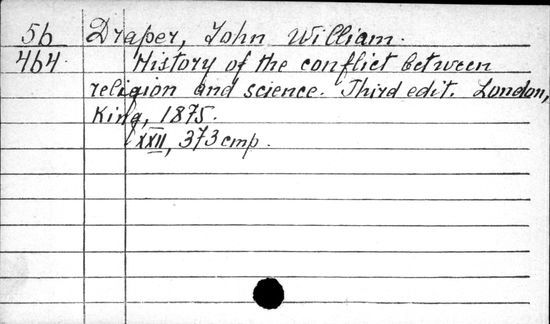 56 Draper, John William.
464 History of the conflict between
religion and science. Third edit. London,
King, 1875.
XXII, 373 стр.